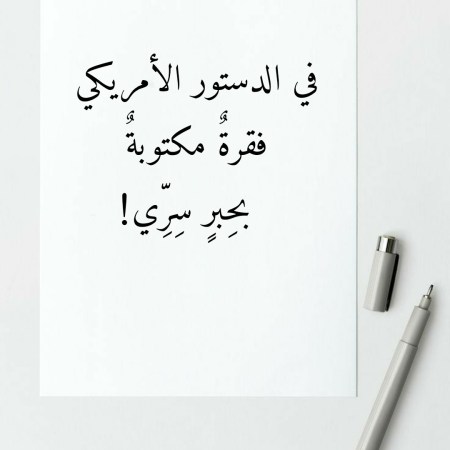 في الدستور الأمريكي
فقرةٌ مكتوبةٌ
بحِبرٍ سِرِّي!